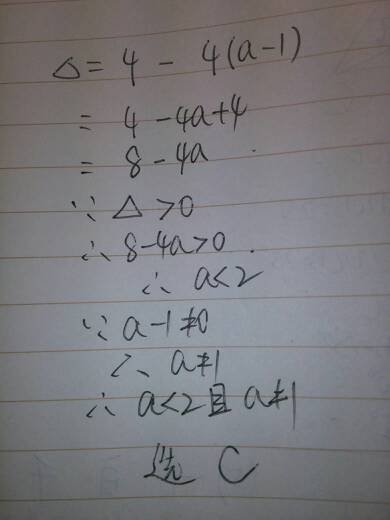 △= 4 - 4(a-1)
= 4-4a+4
= 8-4a
∵ △>0
∴ 8-4a>0
∴ a<2
∵ a-1≠0
∴ a≠1
∴ a<2且a≠1
选 C